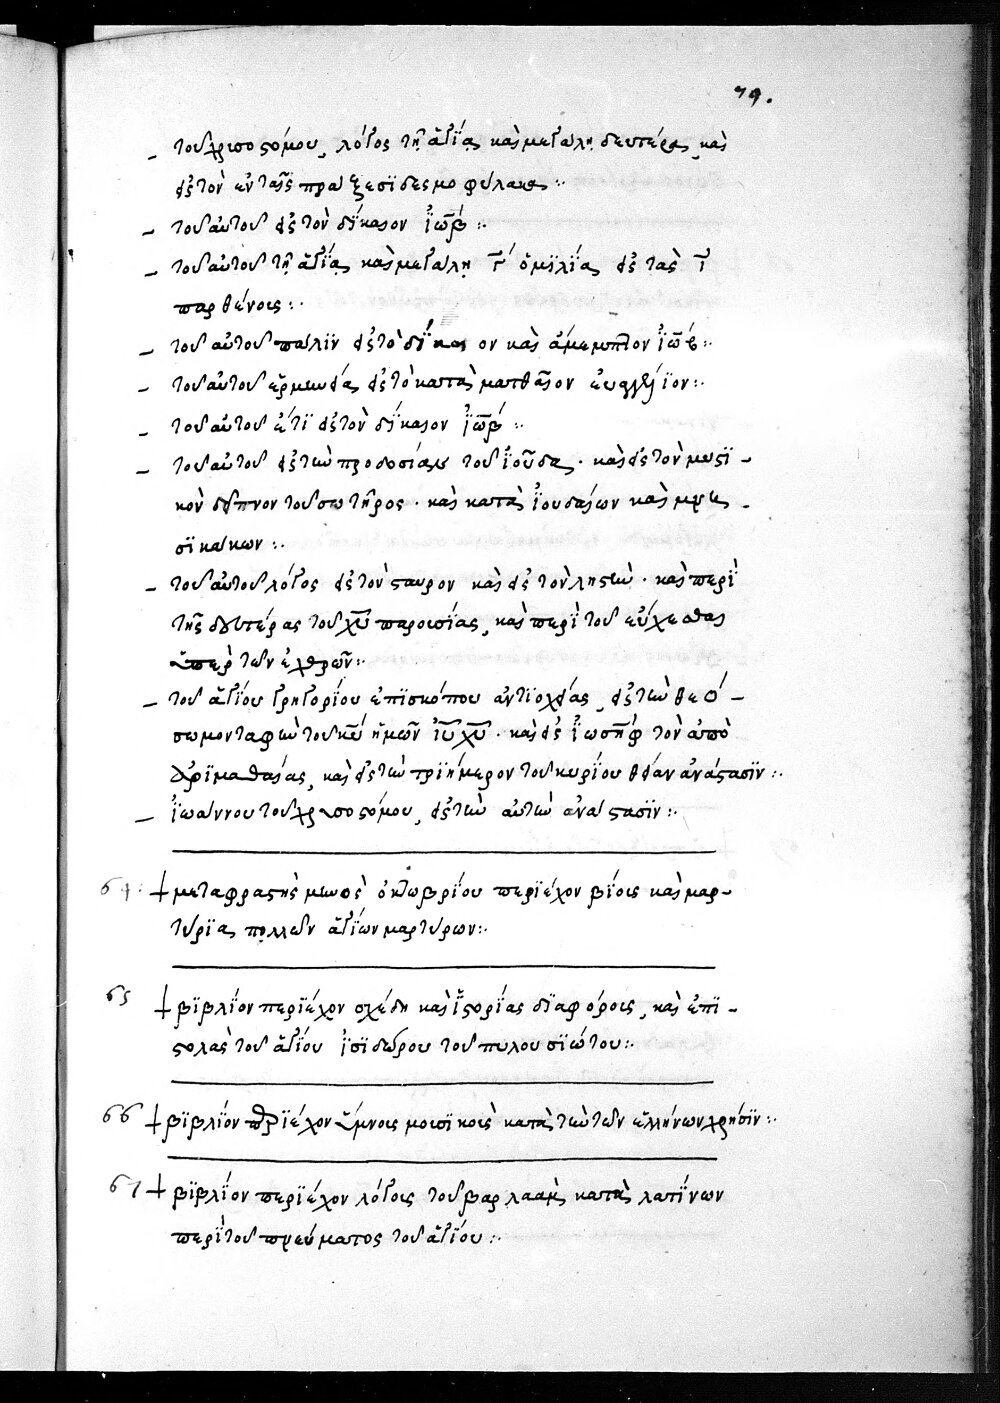 79.
– τοῦ χρισοστόμου, λόγος τῆ ἁγία καὶ μεγάλη δευτέρα, καὶ
εἰς τὸν ἐν ταῖς πράξεσϊ δεσμοφύλακα :·
– τοῦ αὐτοῦ εἰς τὸν δίκαιον ἰὼβ :·
– τοῦ αὐτοῦ τῆ ἁγία καὶ μεγάλη γ´ ὁμϊλία εἰς τὰς ῑ
παρθένοις :·
– τοῦ αὐτοῦ πάλϊν εἰς τὸ δίκαιον καὶ ἄμεμπτον ἰὼβ :·
– τοῦ αὐτοῦ ἑρμινεία εἰς τὸ κατὰ ματθαῖον εὐαγγέλϊον :·
– τοῦ αὐτοῦ ἔτϊ εἰς τὸν δίκαιον ἰὼβ :·
– τοῦ αὐτοῦ εἰς τὼ προδοσίαν τοῦ ἰούδα · καὶ εἰς τὸν μυςϊ –
κὸν δεῖπνον τοῦ σωτῆρος · καὶ κατὰ ἰουδαίων καὶ –
σϊκάκων :·
– τοῦ αὐτοῦ λόγος εἰς τὸν ςαυρὸν καὶ εἰς τὸν ληςτὼ · καὶ περὶ
τῆς δευτέρας τοῦ χ̅υ̅ παροισίας, καὶ περὶ τοῦ εὔχεσθαι
ὑπὲρ τῶν ἐχθρῶν :·
– τοῦ ἁγίου γρηγορίου ἐπϊσκόπου ἀντϊοχείας, εἰς τὼ θεό –
σωμον ταφὼ τοῦ κ̅υ̅ ἡμῶν ἰ̅υ̅ χ̅υ̅ · καὶ εἰς ἰωσὴφ τὸν ἀπὸ
ἀρϊμαθαίας, καὶ εἰς τὼ τρϊήμερον τοῦ κυρίου θείαν ἀνάςασϊν :·
– ἰωάννου τοῦ χρισοςόμου, εἰς τὼ αὐτὼ ἀνάςασϊν :·
64 : † μεταφραςὴς μινὸς ὀκτωβρίου περϊέχον βίοις καὶ μαρ-
τύρϊα πολλῶν ἁγίων μαρτύρων :·
65 † βϊβλίον περϊέχον σχέδη καὶ ἱςορίας δϊαφόροις, καὶ ἐπϊ –
ςολὰς τοῦ ἁγίου ἰσϊδώρου τοῦ πυλουσϊώτου :·
66 † βϊβλίον περϊέχον ὕμνοις μοισϊκοῖς κατὰ τὼ τῶν ἑλλήνων χρῆσϊν :·
67 † βϊβλίον περϊέχον λόγοις τοῦ βαρλαὰμ κατὰ λατίνων
περὶ τοῦ πνεύματος τοῦ ἁγίου :·